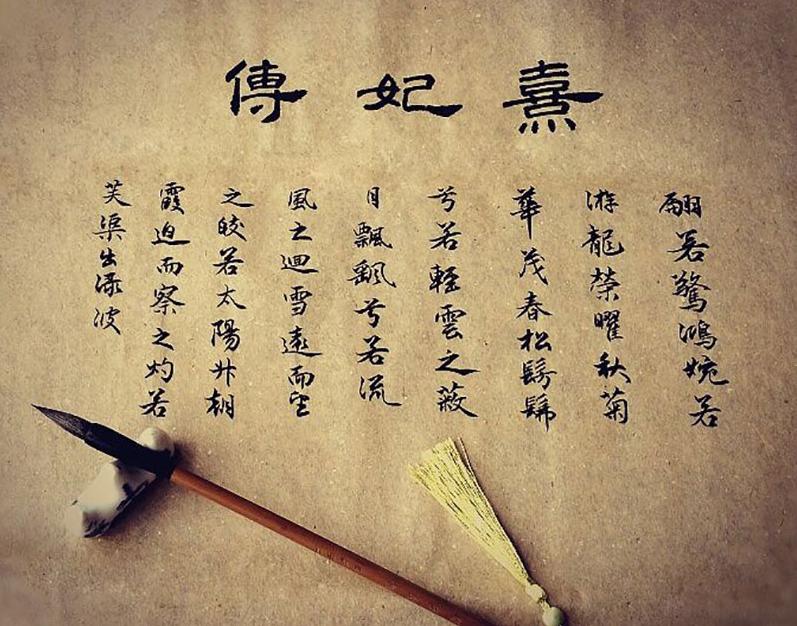 熹妃傳
翩若驚鴻婉若
游龍榮曜秋菊
華茂春松髣髴
兮若輕雲之蔽
月飄颻兮若流
風之迴雪遠而望
之皎若太陽升朝
霞迫而察之灼若
芙渠出渌波